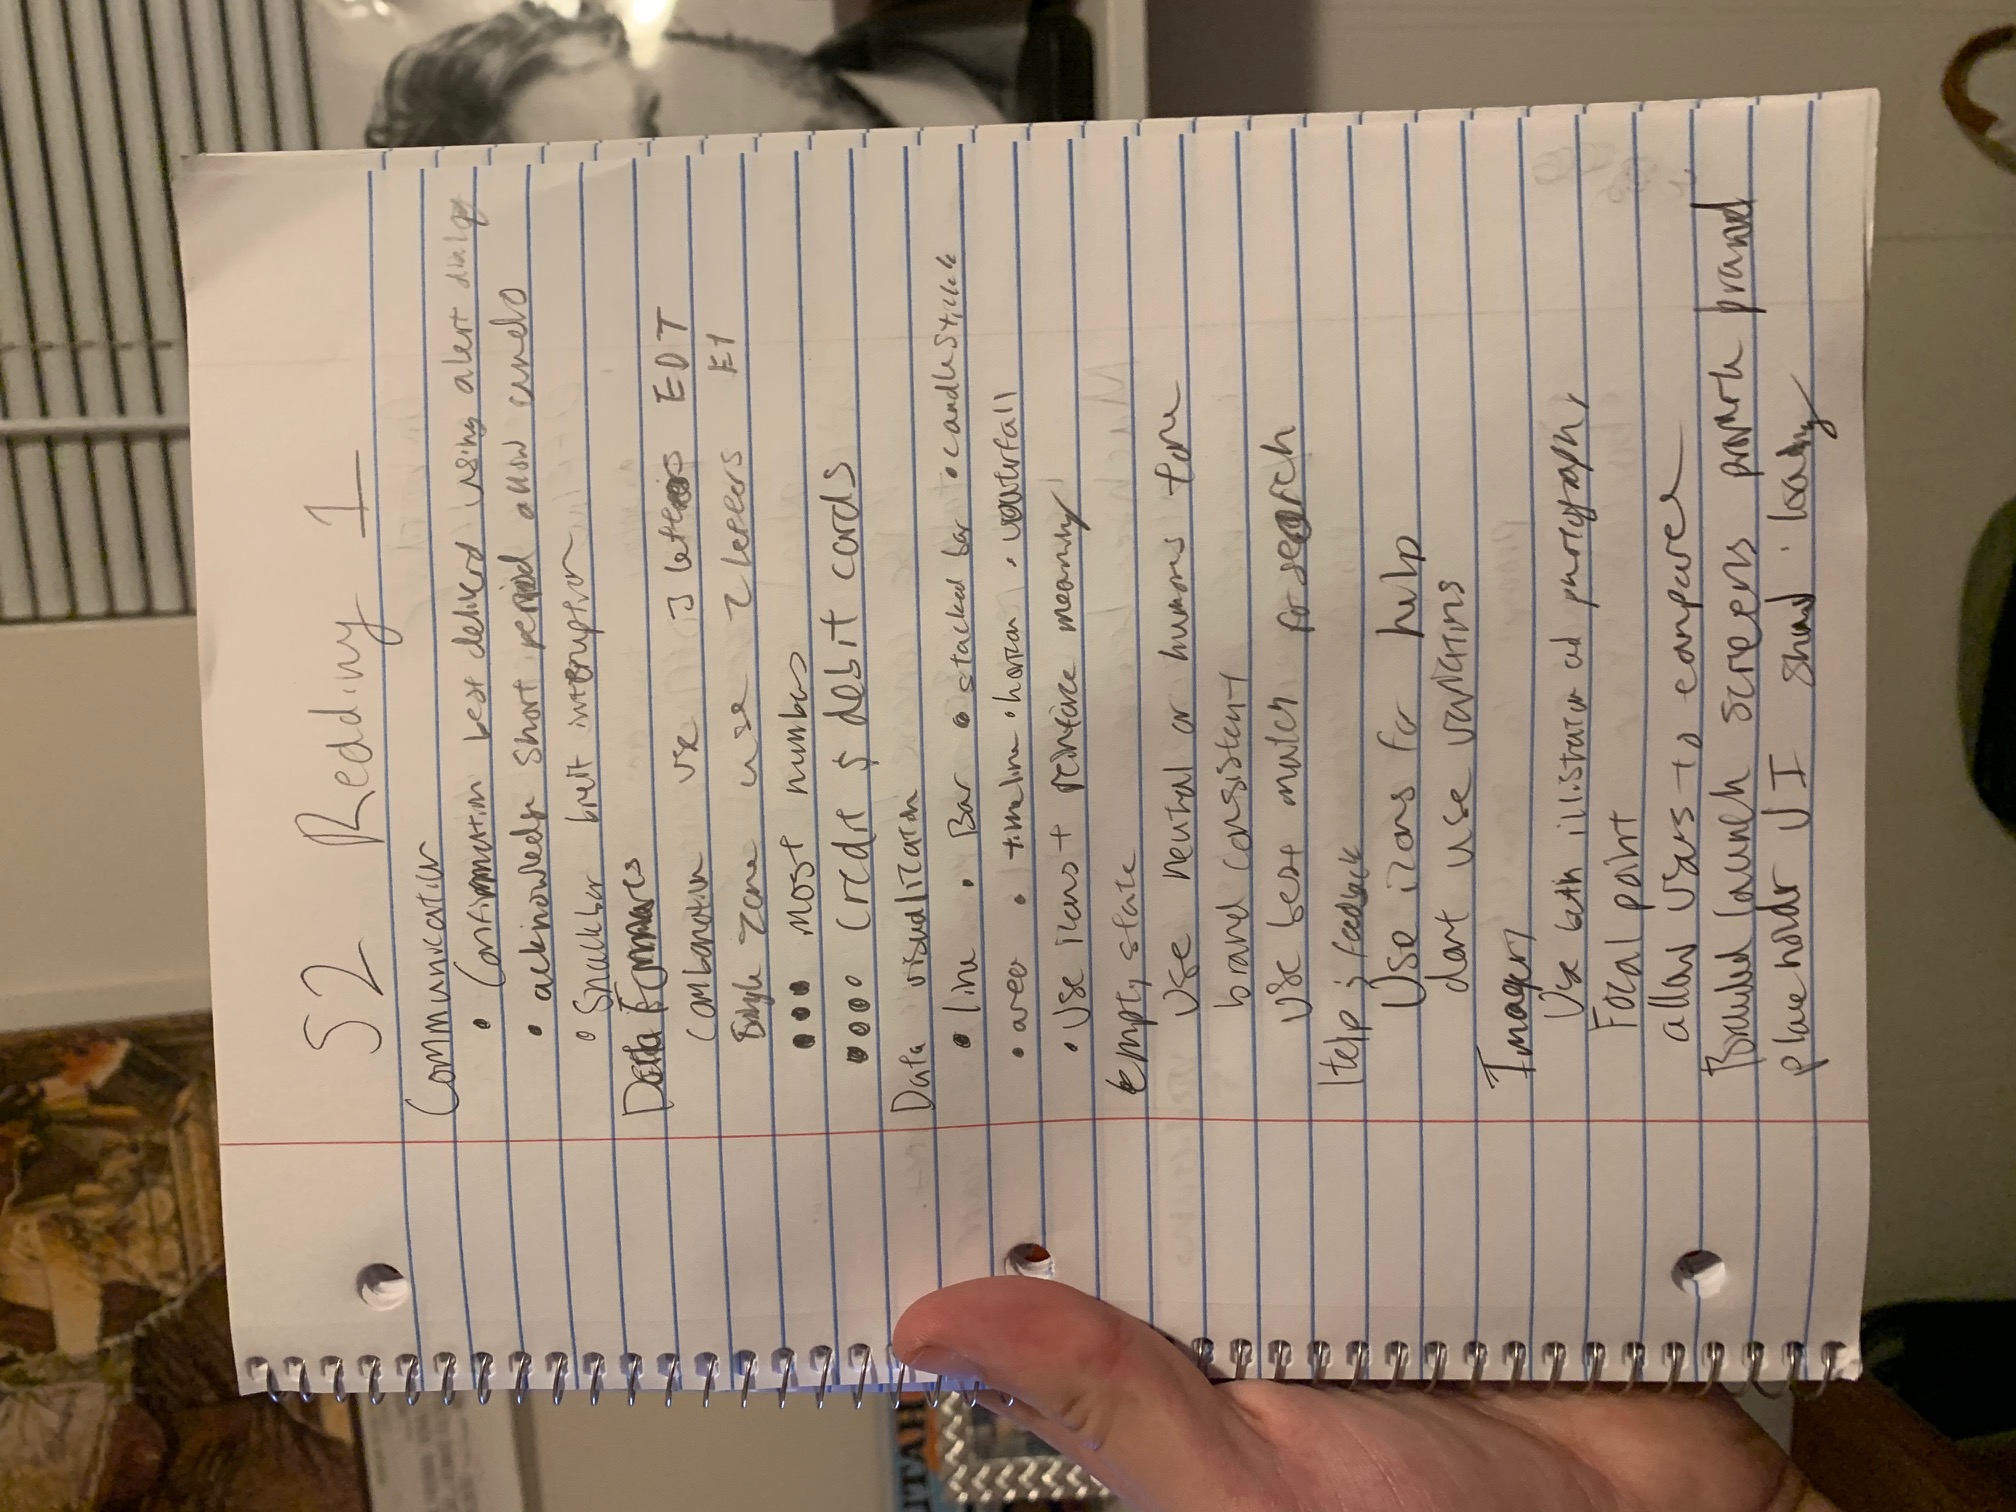 S2 Redding 1
Communication
• Confirmation best deliverd using alert dialog
• acknowledge short period allow undo
• Snackbar breif interruption
Data Formares
Combanation use 3 letters EDT
Single zone use 2 letters ET
••• most numbers
•••• Credit & debit cards
Data visualization
• line • Bar • stacked bar • candlestick
• area • timeline • horizon • waterfall
• Use icons + reinforce meaning
Empty state
Use neutral or humors tone
brand consistent
Use best match for search
Help & feedback
Use icons for help
dont use variations
Imagery
Use both illistration and photography
Focal point
allow users to compare
Branded launch screens brand
placeholder UI loading
UTAH